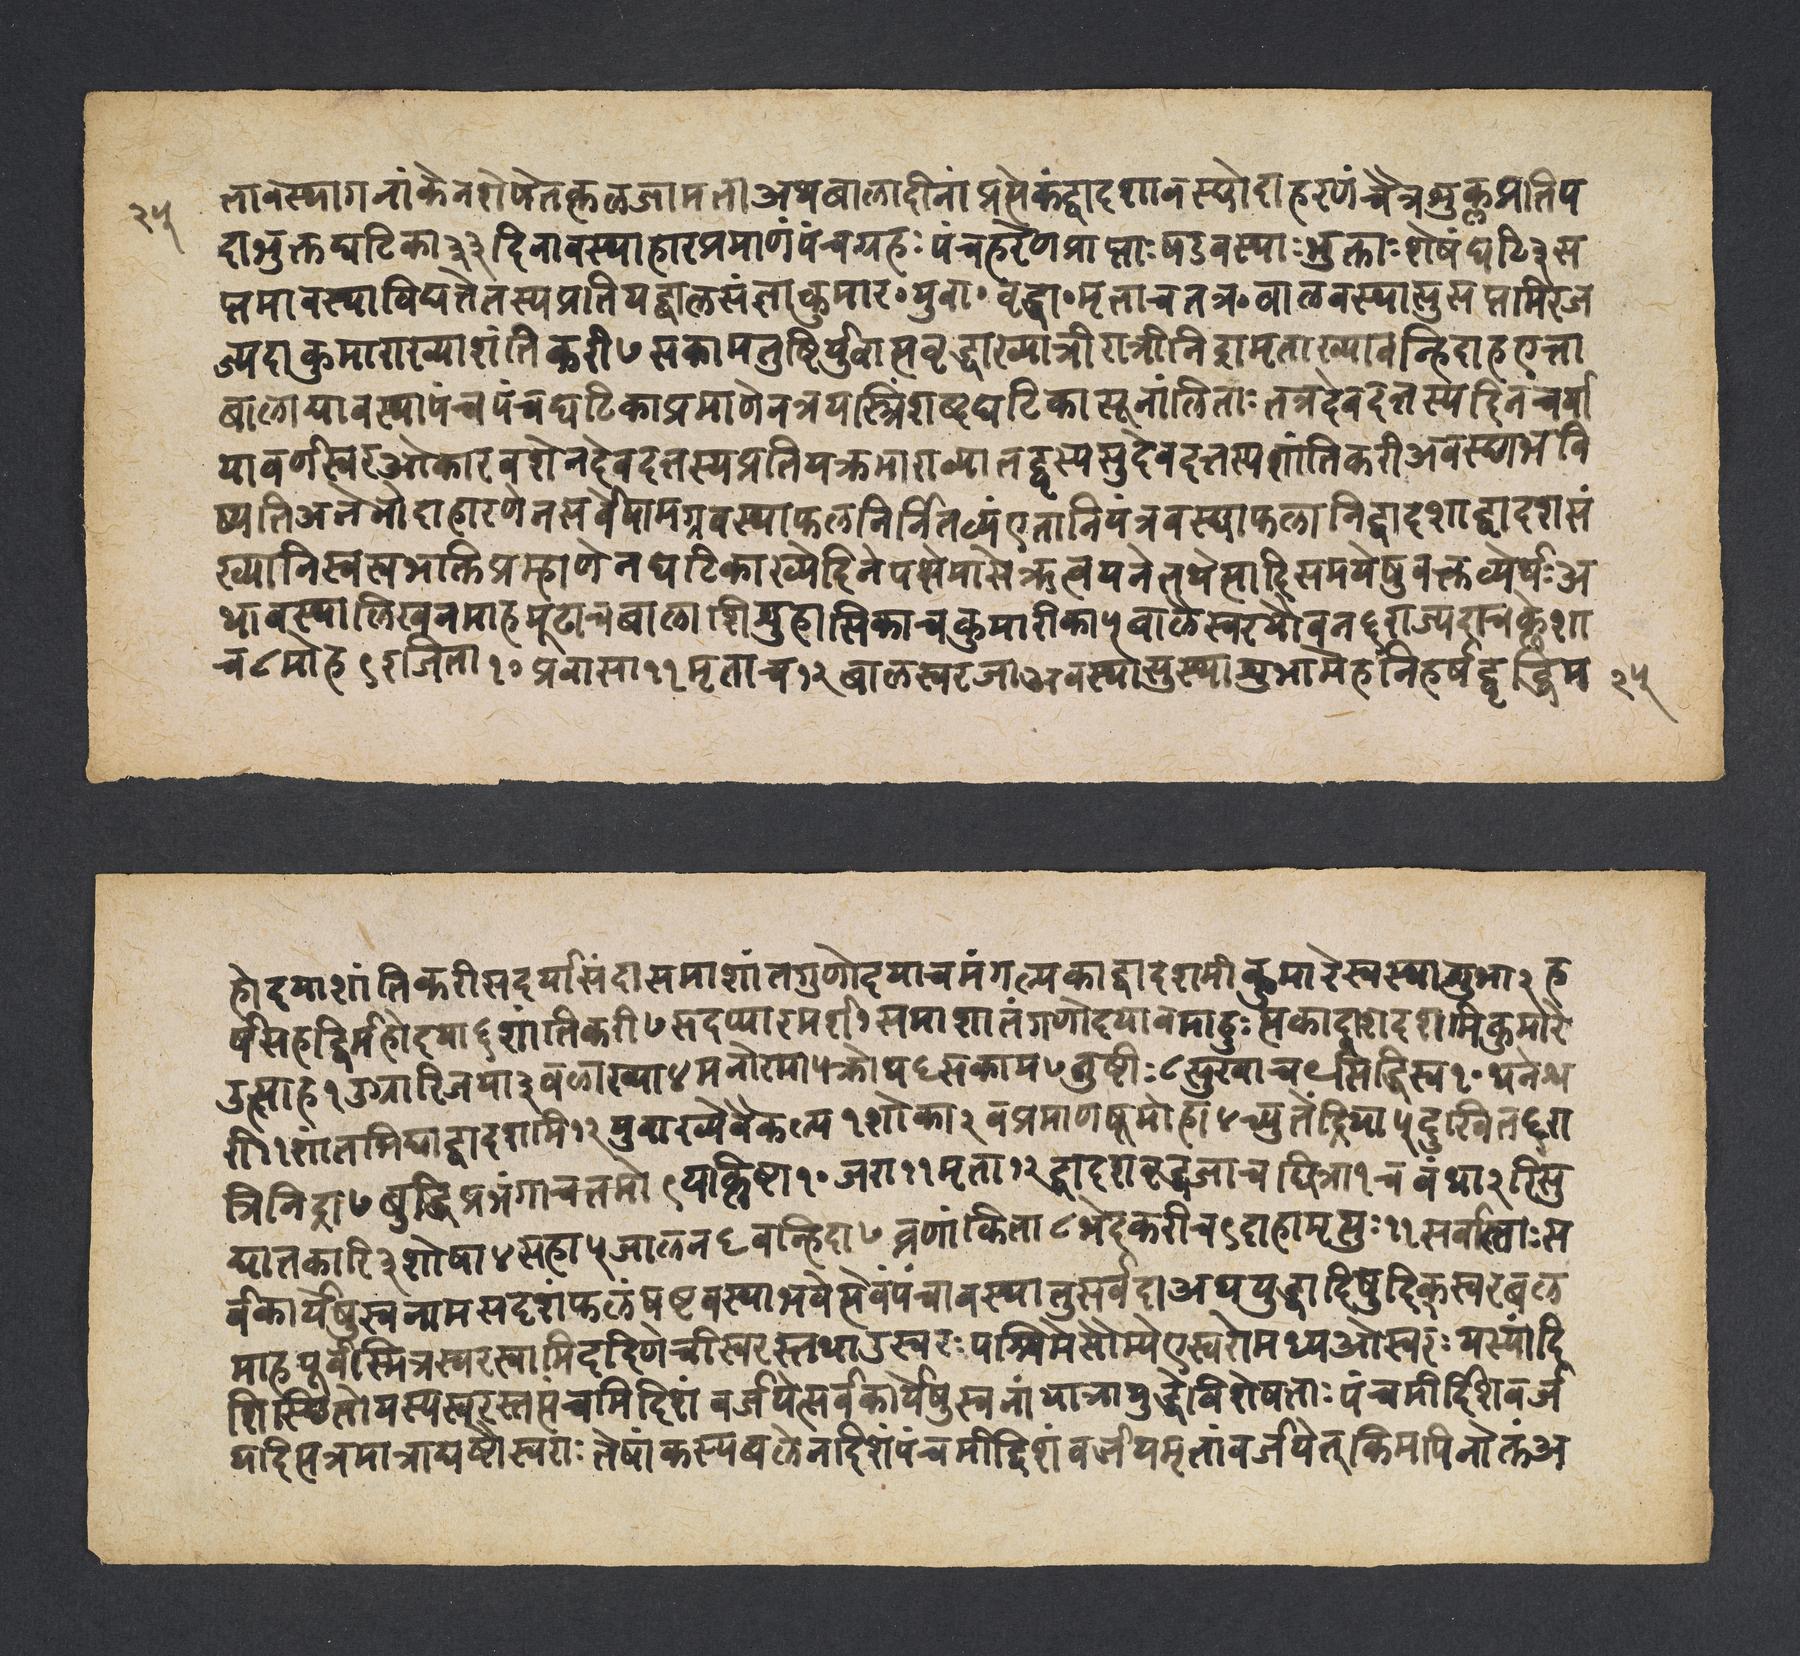 लावस्थागनांकेनशेषेतत्फलजामता।अथबालादीनांप्रत्सेकंद्वादशावस्थोदाहरणंचैत्रशुक्लप्रतिप
२५
दाभुक्तघटिका३३दिनावस्थाहारप्रमाणंपंचग्रहःपंचहरेणप्राप्ताःषडवस्थाःभुक्ताःशेषंघटि३स
प्तमावस्थाविद्यत्तेतस्यप्रतिपद्बालसंज्ञाकुमार॰युवा॰वृद्धा॰मृताचतत्र॰बालवस्थासुसप्तमिरज
ज्यदाकुमाराख्याशंतिकरी७सकामतुष्टिर्युवात्सवृद्धाख्यात्रीरात्रीनिद्रामृताख्यावन्हिदाहएता
बालोयावस्थापंच्चपंचघटिकाप्रमाणेनत्रयस्त्रिंशष्टघटिकासूनांलिताःतत्रदेवदत्तस्यदिनंचर्या
यावर्णस्वरओकारवशेनदेवदत्तस्यप्रतिपत्क्रमाराख्यातद्वस्पसुदेवदत्तस्यशांतिकरीअवस्थाभवि
ष्यतिअनेनोदाहारणेनसर्वेषामग्रवस्थाफलनिर्नितव्यंएतानिपंत्रवस्थाफलानिद्वादशाद्वादशसं
ख्यानिस्वस्वभक्तिप्रम्हाणेनघटिकाख्येदिनेपक्षेमासेऋत्वयनेतथेत्सादिसमयेषुवक्तव्येर्थःअ
थावस्थालिखनमाहमूढाचबालाशिशुहासिकाचकुमारीका५बालेस्वरयौवन६राज्यदाचक्लेशा
च८मोह९र्जिता१०प्रवासा११मृताच१२बालस्वरजाअवस्थासुस्थाशुभामेहंनिहर्षद्वृद्धिम
२५
होदयाशांतिकरीसदर्यासिंदासमाशांतगुणोदयाचमंगल्यकाद्वादशमीकुमारेस्वस्थाशुभा२ह
र्षसिहद्धिर्महोदया६शांतिकरी७सदप्यारमर्श१समाशातंगणोदयावमादुःत्सकाद्वाशदशमिकुमारे
उत्साह१उग्रारिजया३बलाख्या४मनोरमा५क्रोध६सकाम७तुष्टीः८सुखाच९सिद्धिस्व१०धनेथ
री११शांतमिधाद्वादशमि१२युवाख्येवैकल्प१शोका२वप्रमाणष्कमोहा४च्युतेंद्रिया५दुखित६रा
त्रिनिद्रा७बुद्धिप्रभंगाचतमो९पाक्लिष्टा१०जरा११मृता१२द्वादशवृद्धजाचघित्रा१चबंधा२रिसु
घातकारि३शोषा४सहा५जालन६वन्हिदा७व्रणांकिता८भेदकरीच९दाहामृत्युः११सर्वास्वाःस
र्वकार्येषुस्वनामसदृशंफलंषष्टवस्थाभवेत्सेवंपंचावस्थातुसर्वदाअथयुद्धादिषुदिक्स्वरबल
माहपूर्वस्मिन्नस्वरस्वामिददिणेचीस्वरस्तथाउस्वरःपश्चिमेसौम्येएस्वरोमध्यओस्वरःयस्यांदि
शिस्थितोयस्यस्वरस्तसंचमिदिशंवर्जयेत्सर्वकार्येषुस्वनांयात्रायुद्धेविशेषताःपंचमीर्दिशिवर्ज
यदिसत्रमात्राद्यष्टौस्वराःतेषांकस्यबलेनदिशंपंचमीदिशंवर्जयमृतांवर्जयेत्किमपिनोत्तंअ